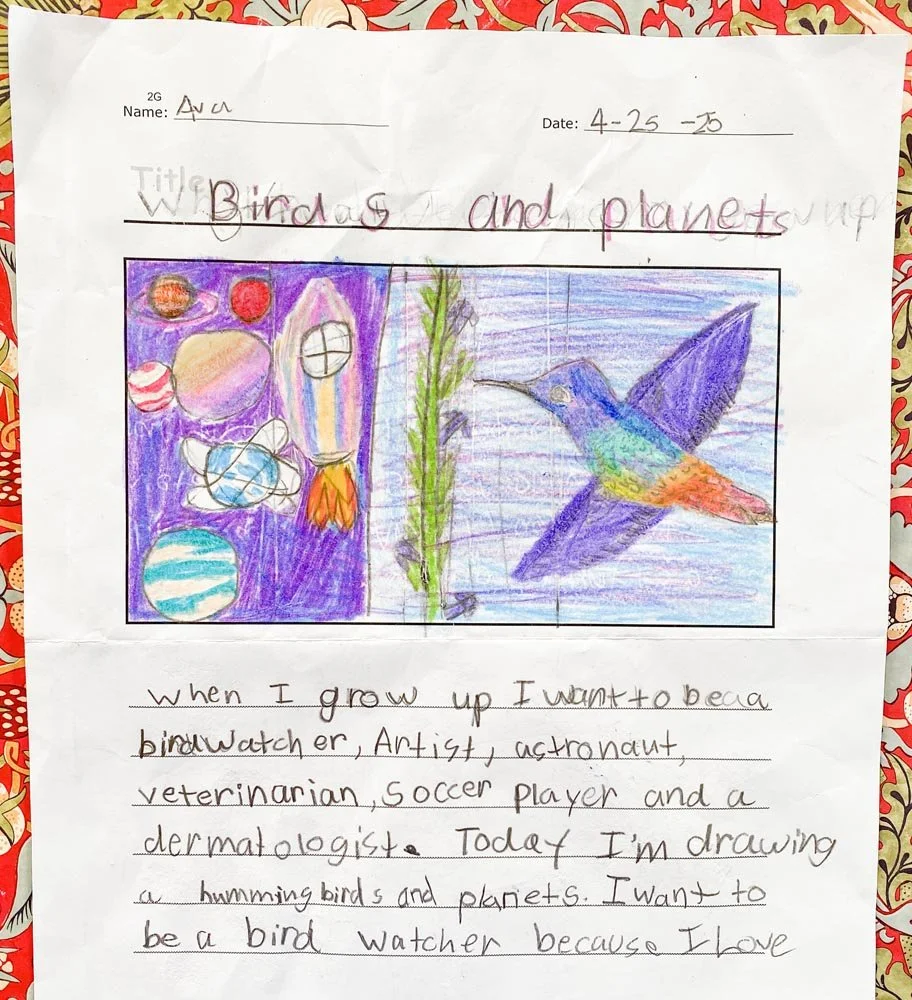 2G
Name: Ava
Date: 4-25-25
Title
Birds and planets
when I grow up I want to be a a
birdwatcher, Artist, astronaut,
veterinarian, soccer player and a
dermatologist. Today I'm drawing
a hummingbirds and planets. I want to
be a bird watcher because I Love